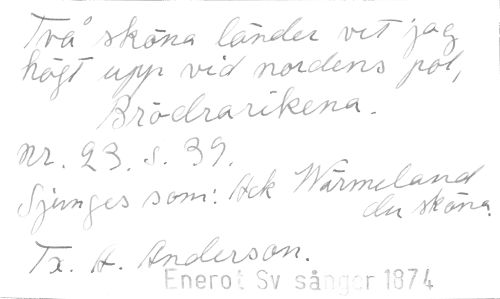 Två sköna länder vet jag
högt upp vid nordens pol,
Brödrarikena.
nr. 23. s. 39.
Sjunges som: Ack Wärmeland
du sköna.
Tx. A. Anderson.
Enerot Sv sånger 1874